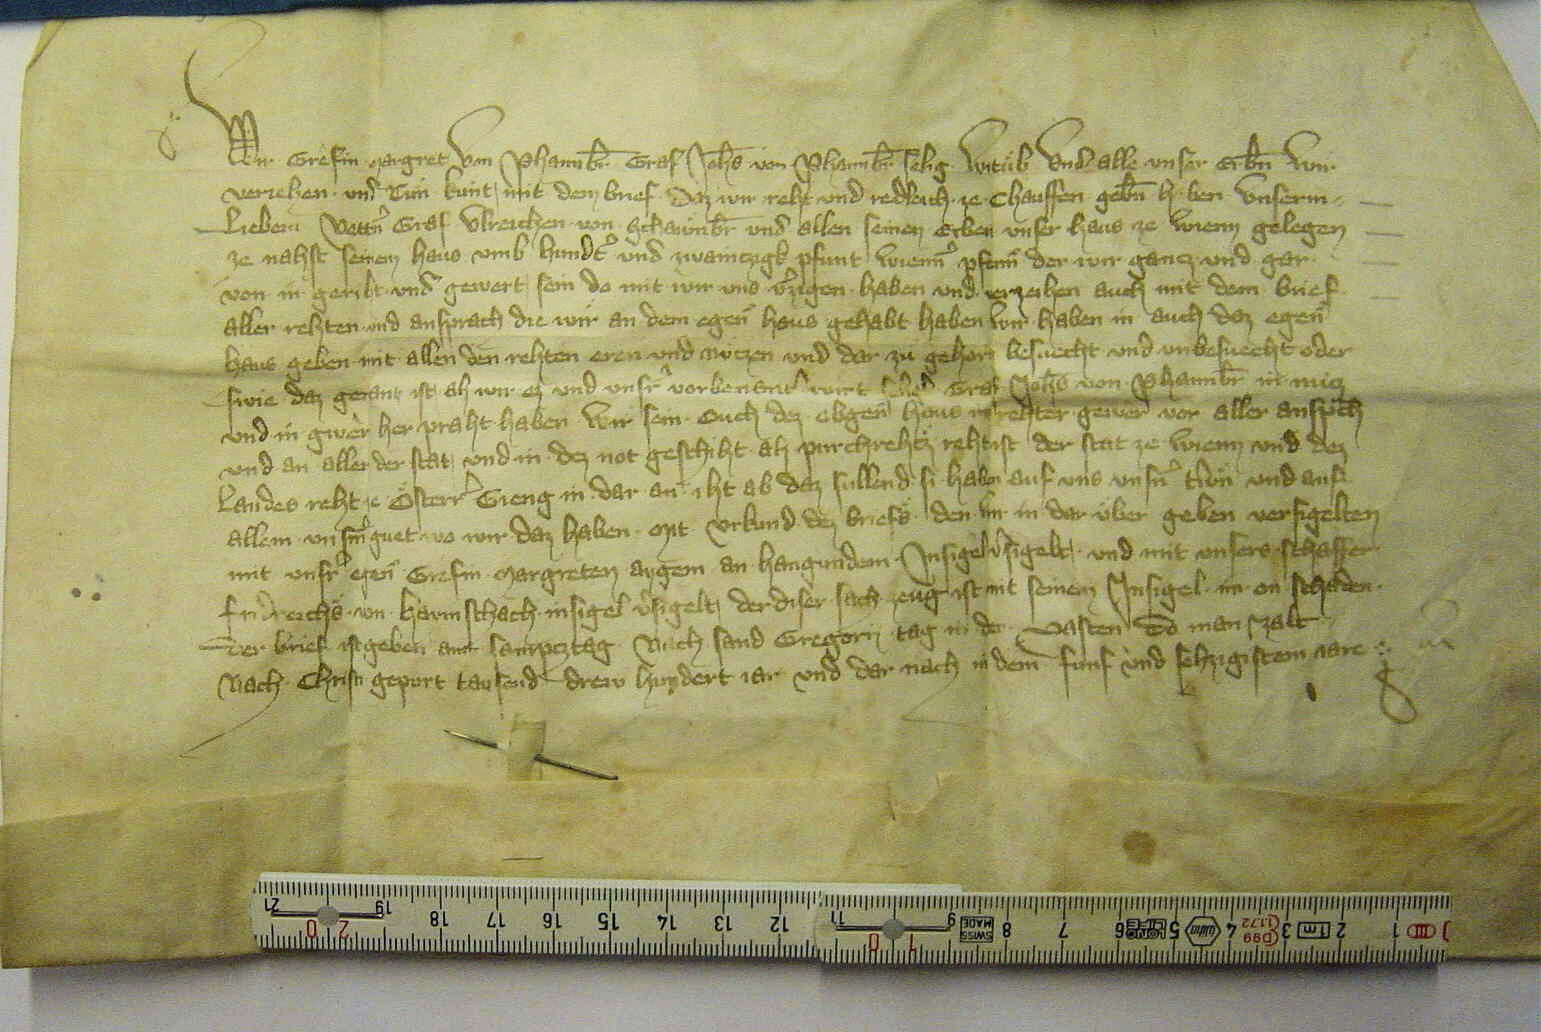 Wir Grefin Margret von Phannbr̄ Graf Joh̄s von Phannbr̄ selig witib vnd alle vnser Erbn̄ wir
veriehen vnd Tun kunt mit dem brief daz wir reht vnd redleich ze Chauffen gebn̄ haben vnserm
Liebem Vettern Graf Vlreichen von Schawnbr̄ vnd allen seinen Erben vnser haus ze wienn gelegen
ze nahst seinem haus vmb hundert vnd zwainczigk pfunt wienner pfenn̄ der wir gancz vnd gar
von in geriht vnd gewert sein da mit wir vns verzigen haben vnd verzeihen auch mit dem brief
aller rehten vnd ansprach die wir an dem egen̄ haus gehabt haben wir haben in auch daz egen̄
haus geben mit allen den rehten eren vnd nutzen vnd dar zu gehort besuecht vnd vnbesuecht oder
swie daz genant ist als wir ez vnd vnser vorbenant wirt selig Graf Joh̄s von Phannbr̄ in nucz
vnd in gwer her praht haben wir sein ouch dez obgen̄ haus ir rehter gewer vor aller ansprch
vnd an aller der stat vnd in dez not geschiht als purchrehtz reht ist der stat ze wienn vnd dez
Landes reht ze Österr Gieng in dar an iht ab daz sullend si haben auf vns vnsern trewn vnd auf
allem vnserm guet wo wir daz haben Mit vrkund dez briefs den wir in dar über geben versigelten
mit vnser egen̄ Grefin Margreten aygem an hangundem Insigel versigelt vnd mit vnsers schaffer
fridreichs von hawnschach insigel versigelt der diser sach zeug ist mit seinem Insigel im on schaden
Der brief ist geben am Sampcztag Nach sand Gregorij tag in der Vasten Do man zalt
Nach Christi gepurt tausend drew hundert iar vnd dar nach in dem funf vnd sehzigistem iare
21 19 18 17 16 15 14 13 12 11 9 8 7 6 5 4 3 2 1
0 2 0 1 SWISS MADE LONGLIFE wm D99 1.172 1m III